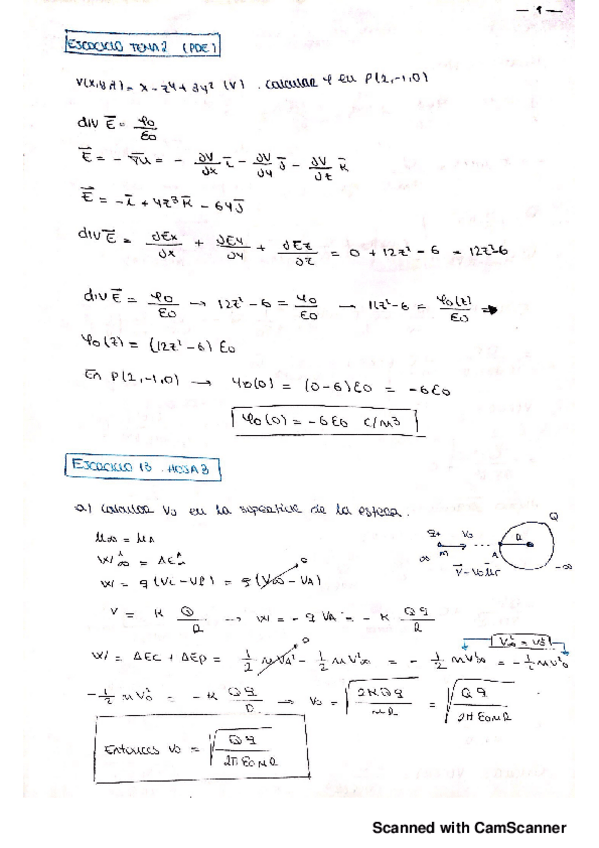 — 1 —
EJERCICIO TEMA 2 (PDE)
V(x,y,z) = x - z⁴ + 3y² (V). Calcular φ en P(2,-1,0)
div E̅ = φ₀/ε₀
E̅ = - ∇̅u = - ∂V/∂x i̅ - ∂V/∂y j̅ - ∂V/∂z k̅
E̅ = -i̅ + 4z³k̅ - 6yj̅
div E̅ = ∂Ex/∂x + ∂Ey/∂y + ∂Ez/∂z = 0 + 12z² - 6 = 12z²-6
div E̅ = φ₀/ε₀ → 12z² - 6 = φ₀/ε₀ → 12z² - 6 = φ₀(z)/ε₀ →
φ₀(z) = (12z² - 6) ε₀
En P(2,-1,0) → φ₀(0) = (0-6)ε₀ = -6ε₀
φ₀(0) = -6ε₀ C/m³
EJERCICIO 13. HOJA 3
a) Calcular V₀ en la superficie de la esfera.
M∞ = MA
q+ V₀ R Q
∞ M A -∞
W = q(Vi - Vf) = q(V∞ - VA) 0
V = K Q/R → W = - q VA = - K Qq/R
W = ΔEc + ΔEp = ½ m VA² - ½ m V∞² = - ½ m V∞² = - ½ m V₀²
0
V∞² = V₀²
-½ m V₀² = -K Qq/R → V₀ = √(2KQq/mR) = √(Qq/2πε₀mR)
Entonces V₀ = √(Qq/2πε₀mR)
Scanned with CamScanner